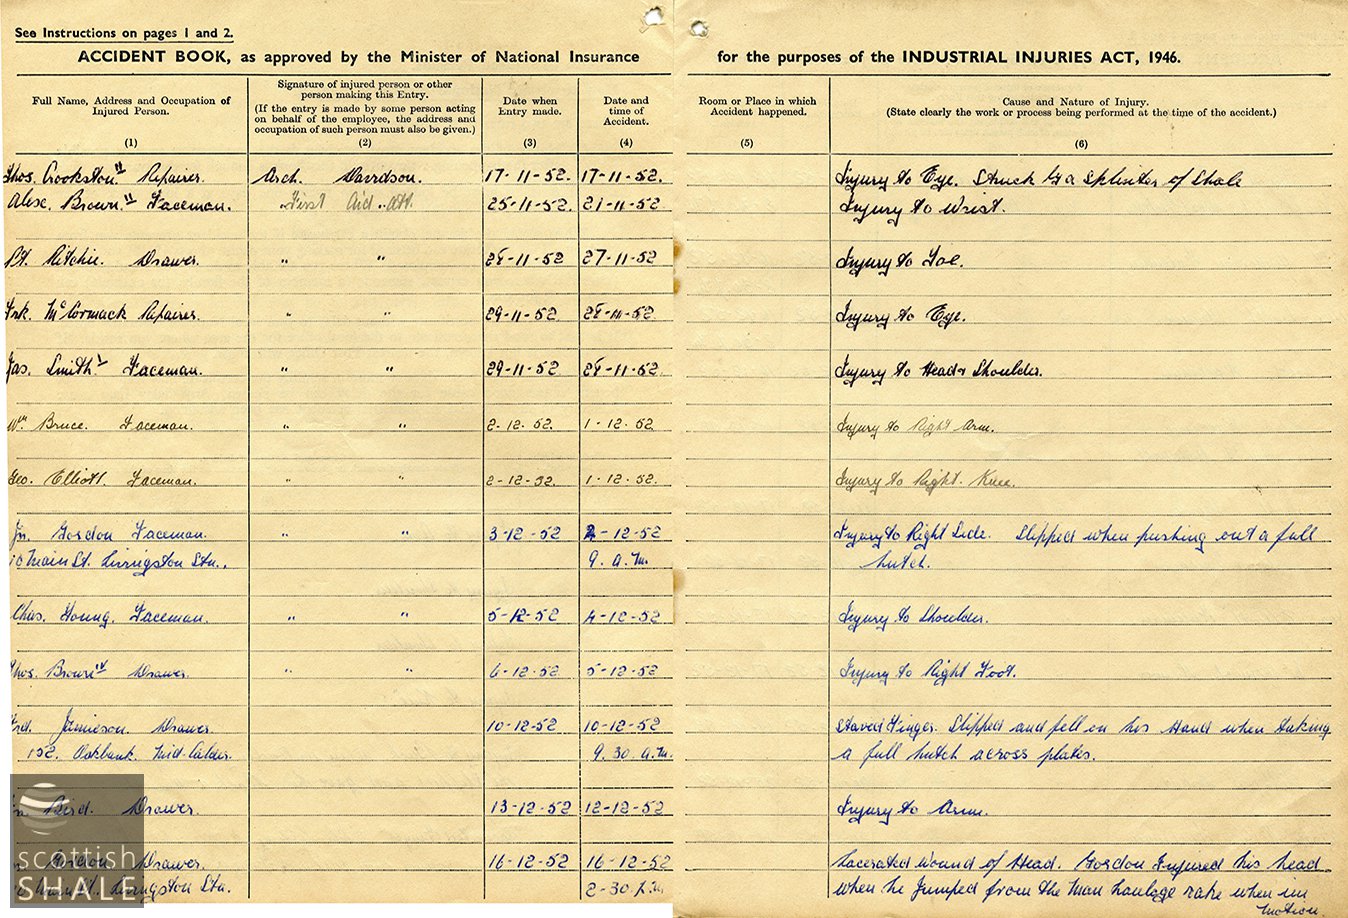 See Instructions on pages 1 and 2.
ACCIDENT BOOK, as approved by the Minister of National Insurance for the purposes of the INDUSTRIAL INJURIES ACT, 1946.
Full Name, Address and Occupation of
Injured Person.
(1)
Signature of injured person or other
person making this Entry.
(If the entry is made by some person acting
on behalf of the employee, the address and
occupation of such person must also be given.)
(2)
Date when
Entry made.
(3)
Date and
time of
Accident.
(4)
Room or Place in which
Accident happened.
(5)
Cause and Nature of Injury.
(State clearly the work or process being performed at the time of the accident.)
(6)
Thos. Crookston Repairer. Arch. Davidson. 17-11-52. 17-11-52. Injury to Eye. Struck by a Splinter of Shale
Alex. Brown Faceman. First Aid Att. 25-11-52. 21-11-52. Injury to Wrist.
Pt. Ritchie. Drawer. " " 28-11-52 27-11-52 Injury to Toe.
Frk. McCormack Repairer. " " 29-11-52. 28-11-52. Injury to Eye.
Jas. Smith Faceman. " " 29-11-52 28-11-52. Injury to Head & Shoulder.
Wm. Bruce. Faceman. " " 2-12-52. 1-12-52. Injury to Right Arm.
Geo. Elliott. Faceman. " " 2-12-52. 1-12-52. Injury to Right Knee.
Jn. Gordon Faceman. " " 3-12-52 2-12-52 Injury to Right Side. Slipped when pushing out a full
10 Main St. Livingston Stn., 9. a.m. hutch.
Chas. Young. Faceman. " " 5-12-52 4-12-52 Injury to Shoulder.
Thos. Brown Drawer. " " 6-12-52 5-12-52 Injury to Right Foot.
Frd. Jamieson. Drawer. 10-12-52 10-12-52 Staved Finger. Slipped and fell on his Hand when taking
152. Oakbank. Mid-Calder. 9. 30. a.m. a full hutch across plates.
Baird. Drawer 13-12-52 12-12-52 Injury to Arm.
Gordon Drawer 16-12-52 16-12-52 Lacerated Wound of Head. Gordon Injured his head
Main St. Livingston Stn. 2-30 p.m when he jumped from the man haulage rake when in
motion
scottish
SHALE